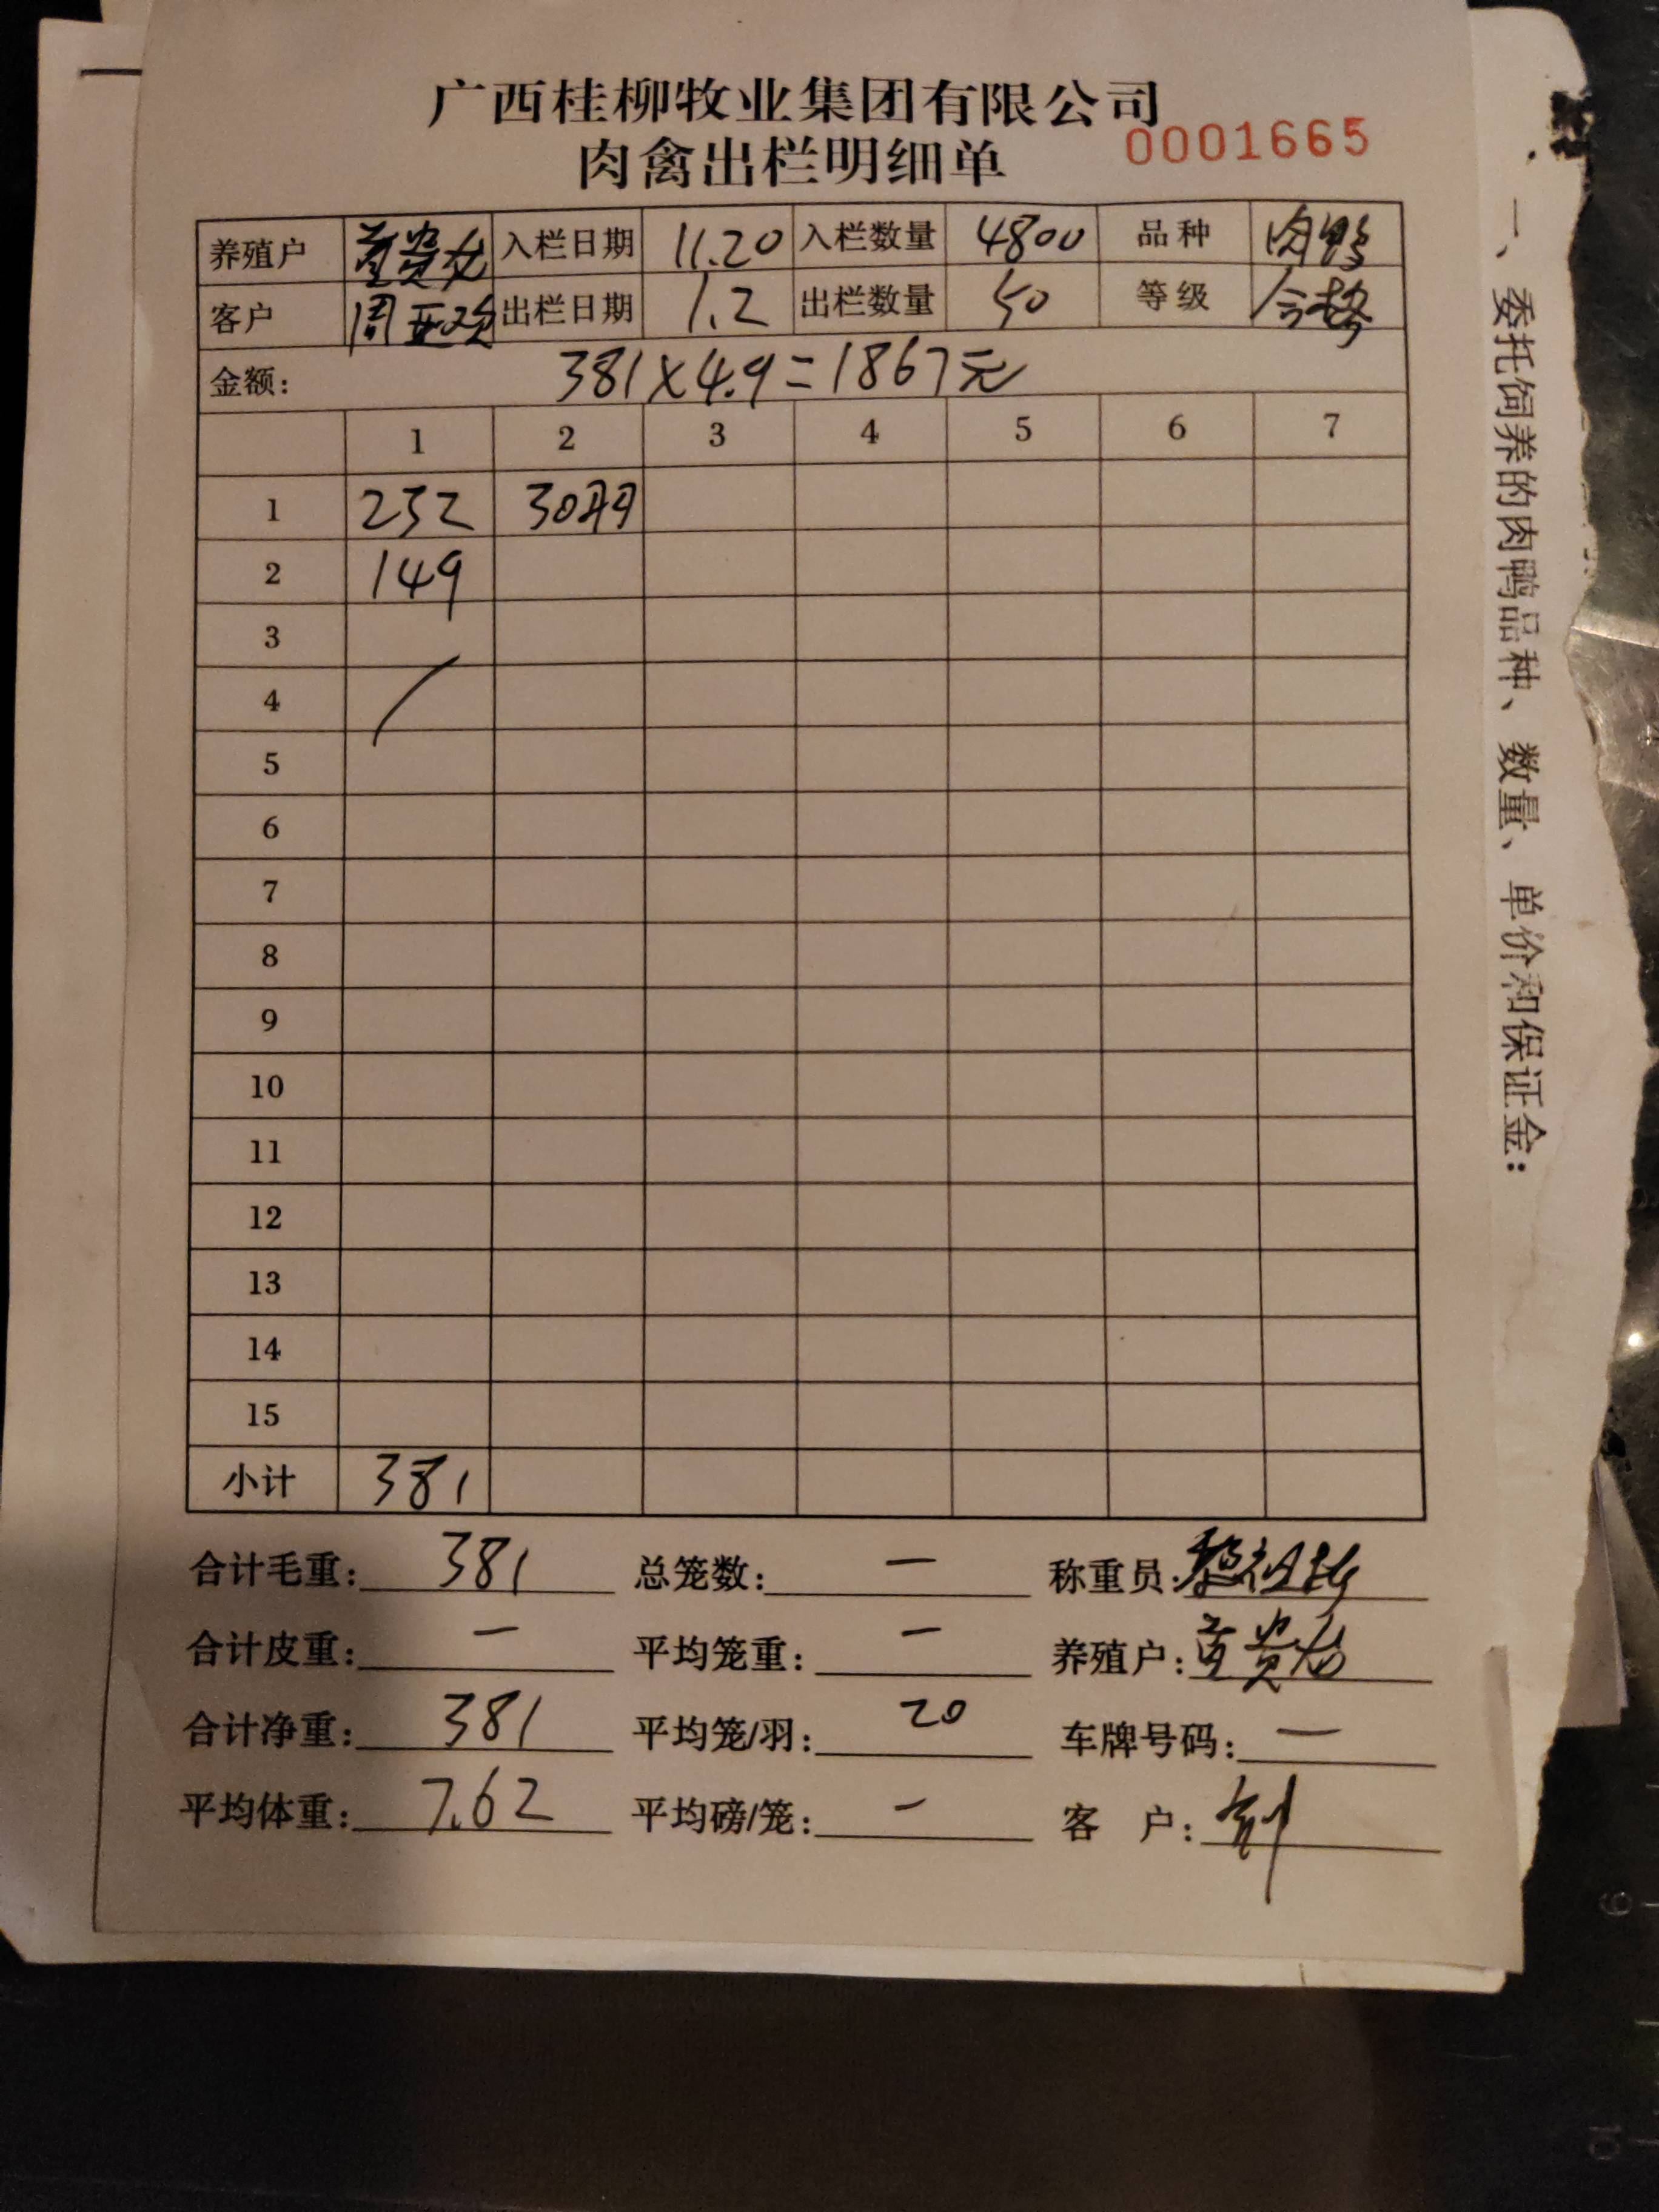 广西桂柳牧业集团有限公司
肉禽出栏明细单 0001665
养殖户 入栏日期 11.20 入栏数量 4800 品种 肉鸭
客户 周 出栏日期 1.2 出栏数量 50 等级 合格
金额: 381×4.9=1867元
1 2 3 4 5 6 7
1 232 30羽
2 149
3
4
5
6
7
8
9
10
11
12
13
14
15
小计 381
合计毛重: 381 总笼数: — 称重员:
合计皮重: — 平均笼重: — 养殖户:
合计净重: 381 平均笼/羽: 20 车牌号码: —
平均体重: 7.62 平均磅/笼: - 客 户:
一、委托饲养的肉鸭品种、数量、单价和保证金:
9
10